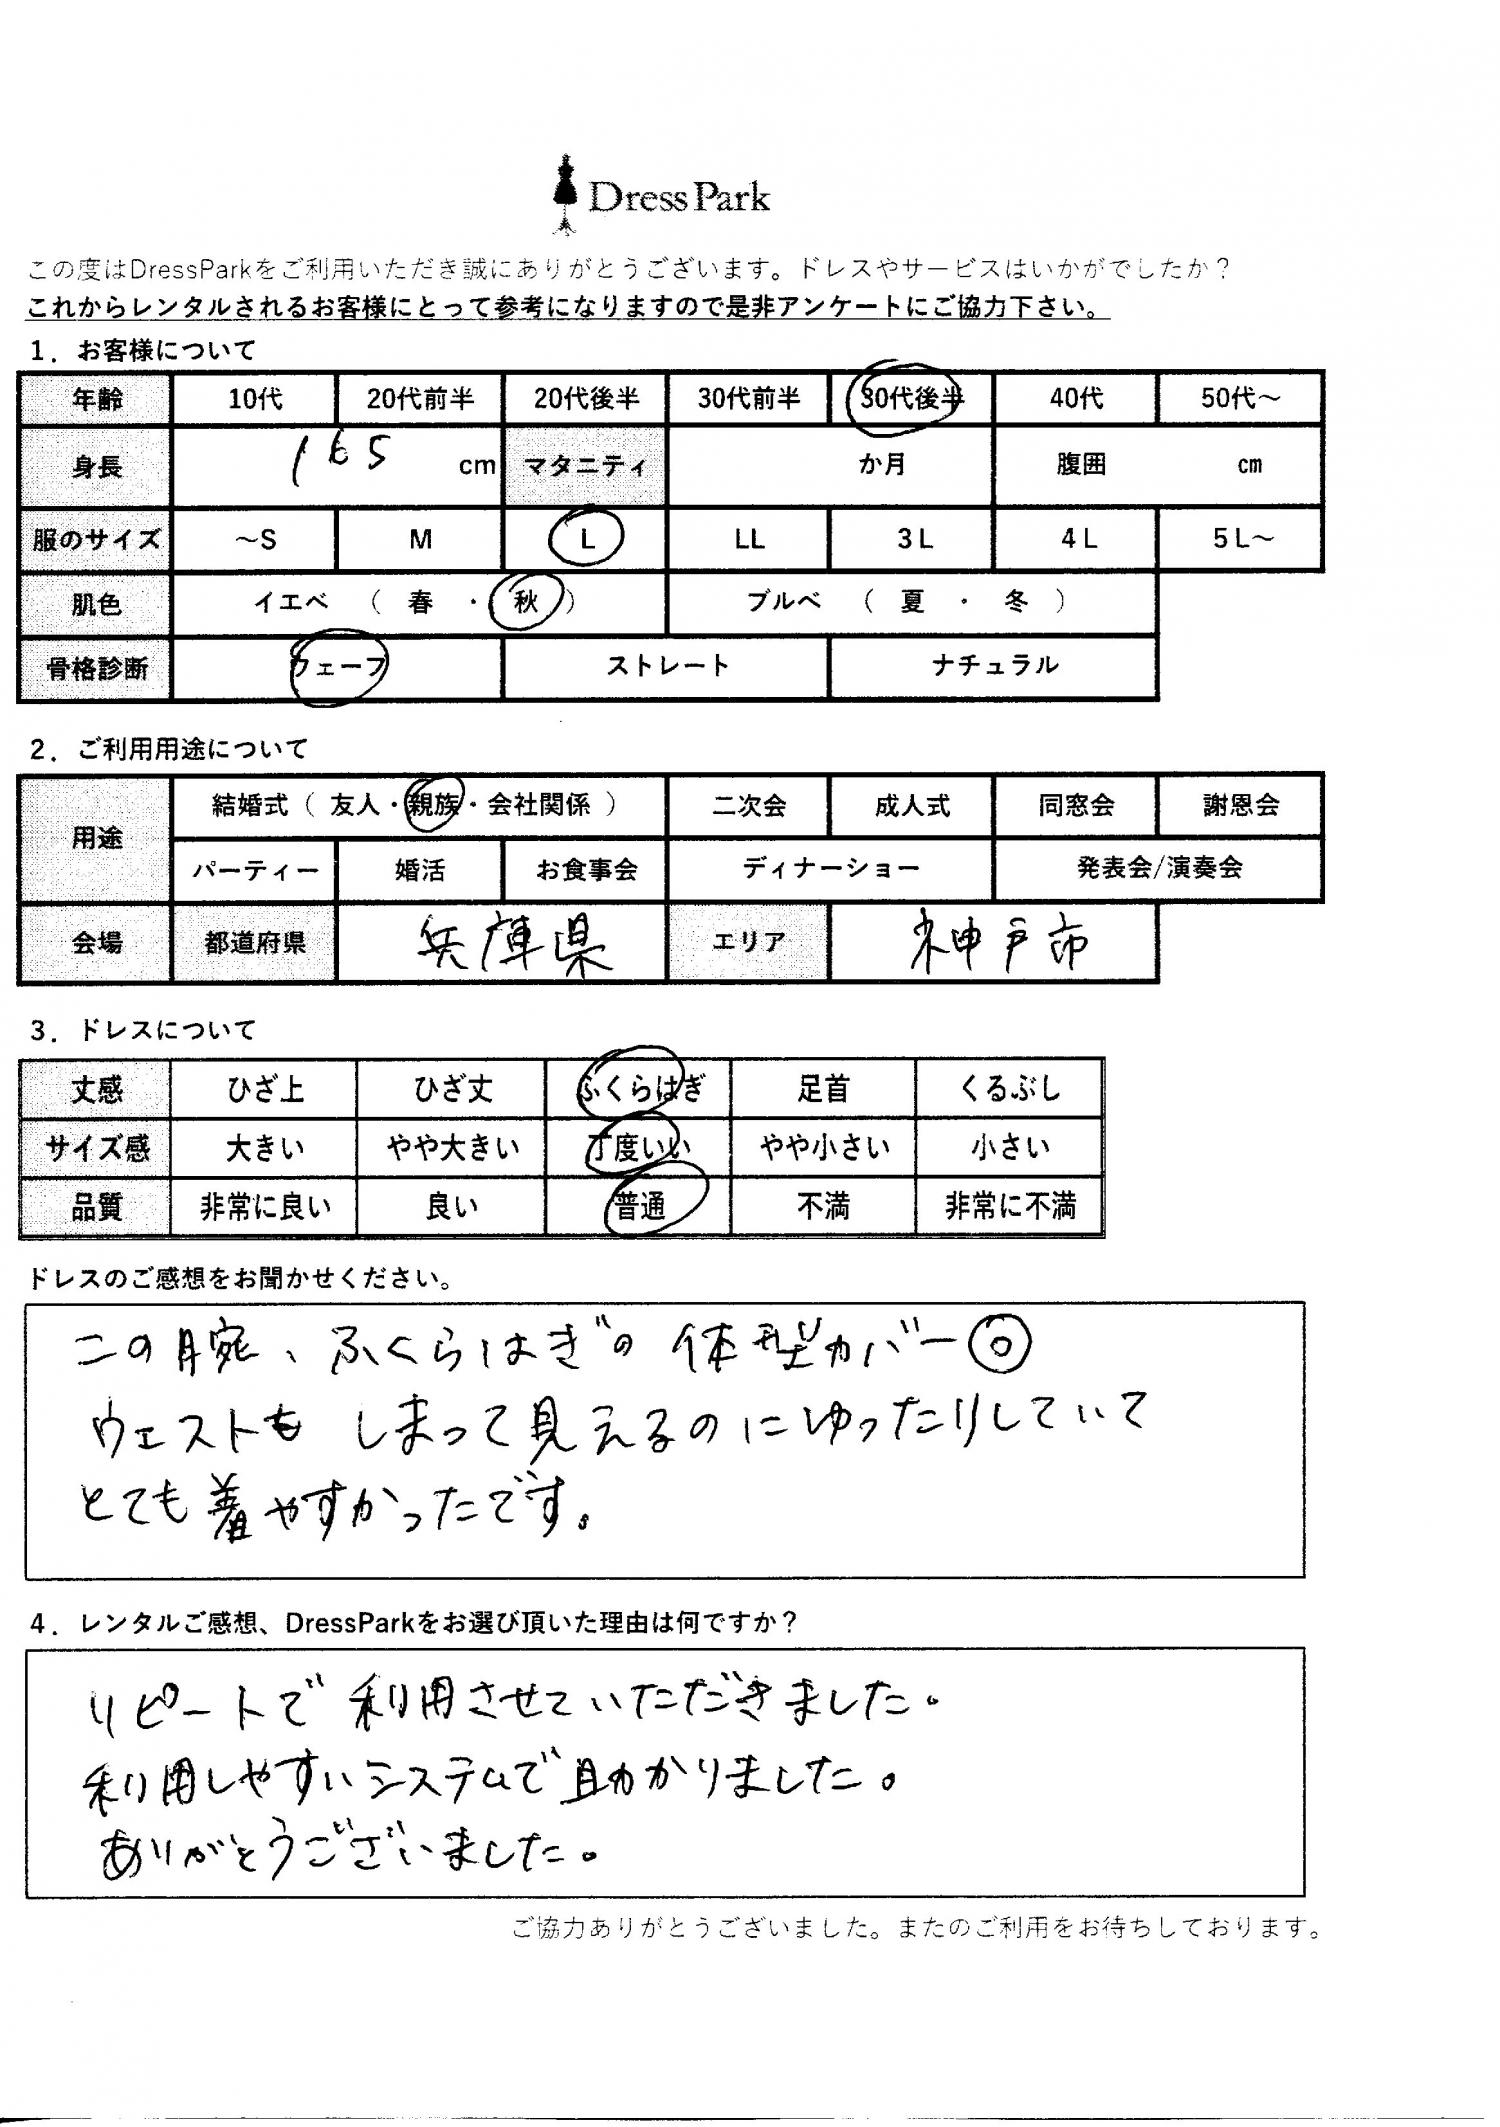 Dress Park
この度はDressParkをご利用いただき誠にありがとうございます。ドレスやサービスはいかがでしたか？
これからレンタルされるお客様にとって参考になりますので是非アンケートにご協力下さい。
1．お客様について
年齢 10代 20代前半 20代後半 30代前半 30代後半 40代 50代～
身長 165 cm マタニティ か月 腹囲 cm
服のサイズ ～S M L LL 3L 4L 5L～
肌色 イエベ （ 春 ・ 秋 ） ブルベ （ 夏 ・ 冬 ）
骨格診断 ウェーブ ストレート ナチュラル
2．ご利用用途について
用途 結婚式（ 友人・親族・会社関係 ） 二次会 成人式 同窓会 謝恩会
パーティー 婚活 お食事会 ディナーショー 発表会/演奏会
会場 都道府県 兵庫県 エリア 神戸市
3．ドレスについて
丈感 ひざ上 ひざ丈 ふくらはぎ 足首 くるぶし
サイズ感 大きい やや大きい 丁度いい やや小さい 小さい
品質 非常に良い 良い 普通 不満 非常に不満
ドレスのご感想をお聞かせください。
二の腕、ふくらはぎの体型カバー◎
ウェストも しまって見えるのにゆったりしていて
とても着やすかったです。
4．レンタルご感想、DressParkをお選び頂いた理由は何ですか？
リピートで利用させていただきました。
利用しやすいシステムで助かりました。
ありがとうございました。
ご協力ありがとうございました。またのご利用をお待ちしております。